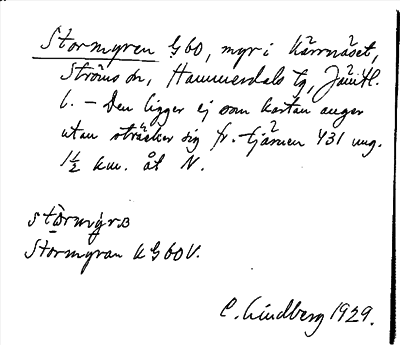 Stormyren G60, myr i Kärrnäset,
Ströms sn, Hammerdals tg, Jämtl.
l. – Den ligger ej som kartan anger
utan sträcker sig fr. tjärnen 431 ung.
1½ km. åt N.
Stormyran k G60V.
C. Lindberg 1929.